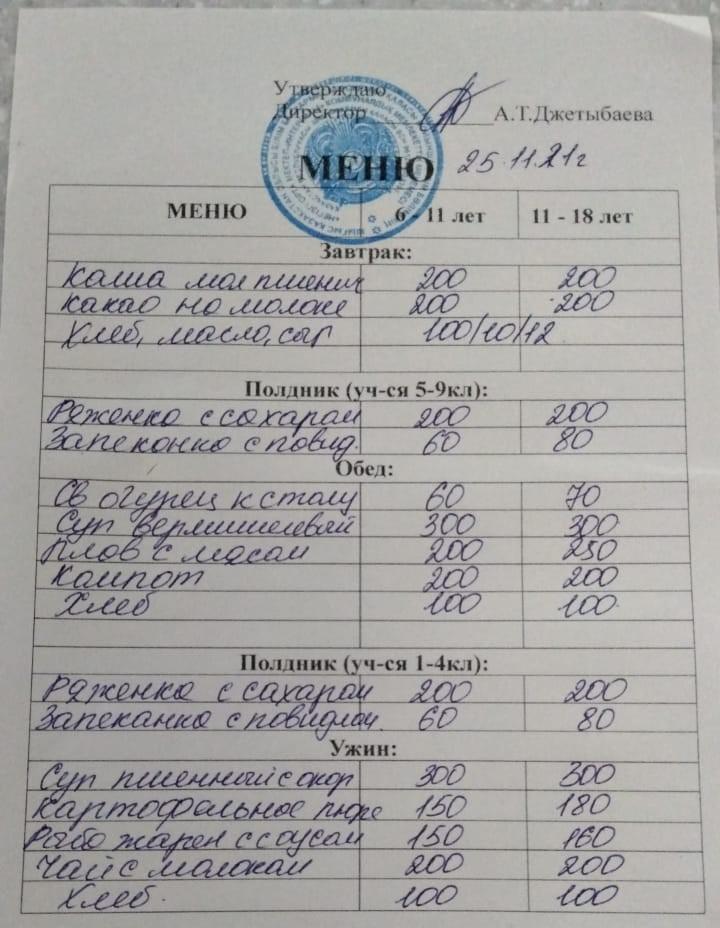 Утверждаю
Директор А.Т.Джетыбаева
МЕНЮ 25.11.21г
МЕНЮ 6 - 11 лет 11 - 18 лет
Завтрак:
Каша мол пшенич 200 200
какао на молоке 200 200
Хлеб, масло, сыр 100/10/12
Полдник (уч-ся 5-9кл):
Ряженка с сахаром 200 200
Запеканка с повид. 60 80
Обед:
Св огурец к столу 60 70
Суп вермишелевый 300 300
Плов с мясом 200 250
Компот 200 200
Хлеб 100 100
Полдник (уч-ся 1-4кл):
Ряженка с сахаром 200 200
Запеканка с повидлом. 60 80
Ужин:
Суп пшенный с окор 300 300
Картофельное пюре 150 180
Рыба жарен с соусом 150 160
Чай с молоком 200 200
Хлеб. 100 100